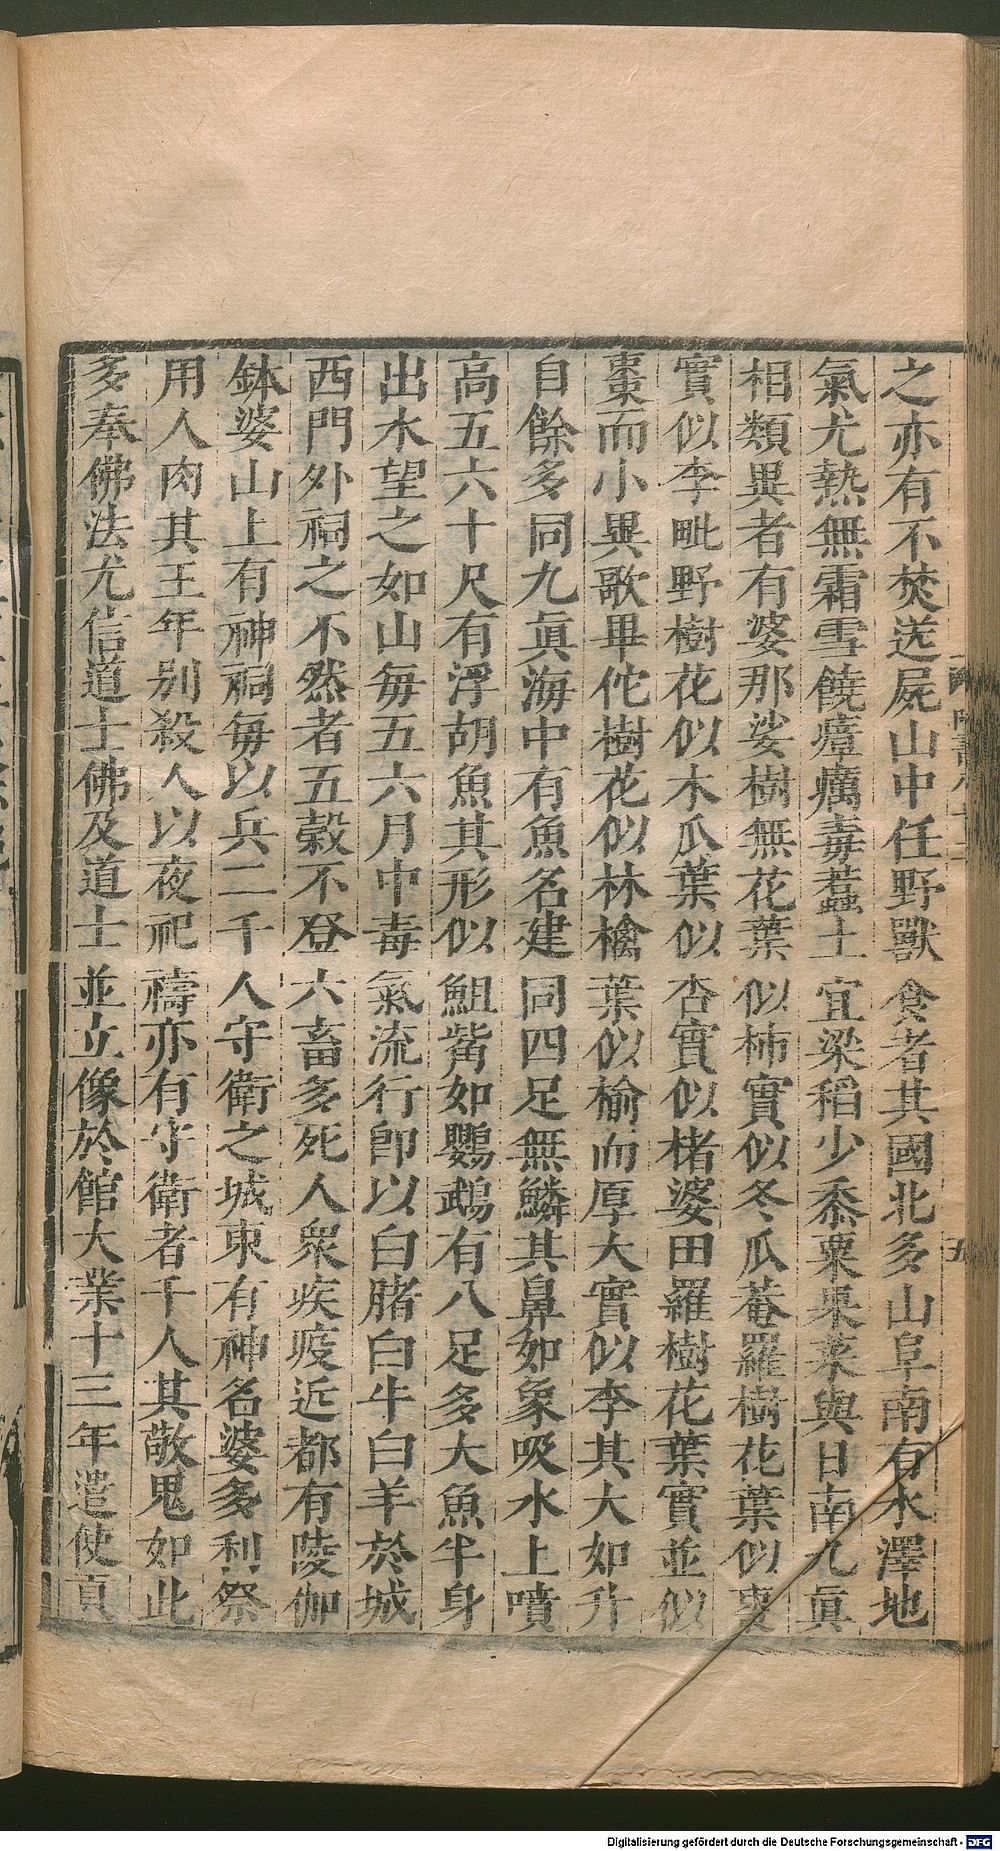 之亦有不焚送屍山中任野獸食者其國北多山阜南有水澤地
氣尤熱無霜雪饒瘴癘毒蠚土宜梁稻少黍粟果菜與日南九眞
相類異者有婆那娑樹無花葉似柿實似冬瓜菴羅樹花葉似棗
實似李毗野樹花似木瓜葉似杏實似楮婆田羅樹花葉實並似
棗而小異歌畢佗樹花似林檎葉似榆而厚大實似李其大如升
自餘多同九眞海中有魚名建同四足無鱗其鼻如象吸水上噴
高五六十尺有浮胡魚其形似䱉觜如鸚鵡有八足多大魚半身
出水望之如山每五六月中毒氣流行卽以白豬白牛白羊於城
西門外祠之不然者五穀不登六畜多死人衆疾疫近都有陵伽
鉢婆山上有神祠每以兵二千人守衛之城東有神名婆多利祭
用人肉其王年别殺人以夜祀禱亦有守衛者千人其敬鬼如此
多奉佛法尤信道士佛及道士並立像於館大業十三年遣使貢
五
Digitalisierung gefördert durch die Deutsche Forschungsgemeinschaft - DFG